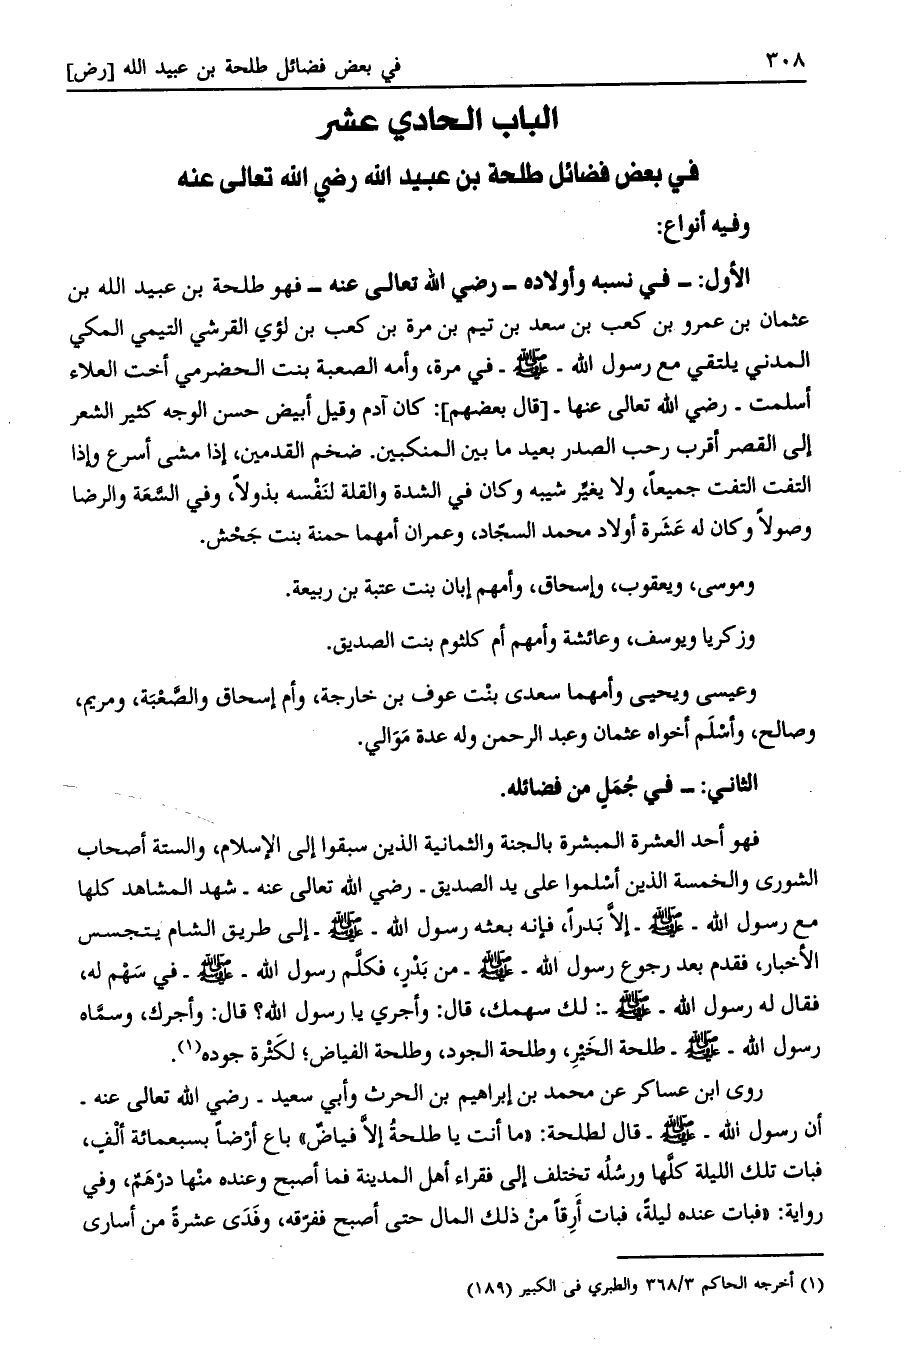 ٣٠٨ في بعض فضائل طلحة بن عبيد الله [رض]
الباب الحادي عشر
في بعض فضائل طلحة بن عبيد الله رضي الله تعالى عنه
وفيه أنواع:
الأول: ـ في نسبه وأولاده ـ رضي الله تعالى عنه ـ فهو طلحة بن عبيد الله بن
عثمان بن عمرو بن كعب بن سعد بن تيم بن مرة بن كعب بن لؤي القرشي التيمي المكي
المدني يلتقي مع رسول الله ـ ﷺ ـ في مرة، وأمه الصعبة بنت الحضرمي أخت العلاء
أسلمت ـ رضي الله تعالى عنها ـ [قال بعضهم]: كان آدم وقيل أبيض حسن الوجه كثير الشعر
إلى القصر أقرب رحب الصدر بعيد ما بين المنكبين. ضخم القدمين، إذا مشى أسرع وإذا
التفت التفت جميعاً، ولا يغيِّر شيبه وكان في الشدة والقلة لنَفْسه بذولاً، وفي السَّعَة والرضا
وصولاً وكان له عَشَرة أولاد محمد السجّاد، وعمران أمهما حمنة بنت جَحْش.
وموسى، ويعقوب، وإسحاق، وأمهم إبان بنت عتبة بن ربيعة.
وزكريا ويوسف، وعائشة وأمهم أم كلثوم بنت الصديق.
وعيسى ويحيى وأمهما سعدى بنْت عوف بن خارجة، وأم إسحاق والصَّعْبَة، ومريم،
وصالح، وأسْلَم أخواه عثمان وعبد الرحمن وله عدة مَوَالي.
الثاني: ـ في جُمَلٍ من فضائله.
فهو أحد العشرة المبشرة بالجنة والثمانية الذين سبقوا إلى الإسلام، والستة أصحاب
الشورى والخمسة الذين أسْلموا على يد الصديق ـ رضي الله تعالى عنه ـ شهد المشاهد كلها
مع رسول الله ـ ﷺ ـ إلاَّ بَدراً، فإنه بعثه رسول الله ـ ﷺ ـ إلى طريق الشام يتجسس
الأخبار، فقدم بعد رجوع رسول الله ـ ﷺ ـ من بَدْرٍ، فكلَّم رسول الله ـ ﷺ ـ في سَهْم له،
فقال له رسول الله ـ ﷺ ـ: لك سهمك، قال: وأجري يا رسول الله؟ قال: وأجرك، وسمَّاه
رسول الله ـ ﷺ ـ طلحة الخَيْرِ، وطلحة الجود، وطلحة الفياض؛ لكَثْرة جوده(١).
روى ابن عساكر عن محمد بن إبراهيم بن الحرث وأبي سعيد ـ رضي الله تعالى عنه ـ
أن رسول الله ـ ﷺ ـ قال لطلحة: «ما أنت يا طلحةُ إلاَّ فياضٌ» باع أرْضاً بسبعمائة ألْفٍ،
فبات تلك الليلة كلَّها ورسُلُه تختلف إلى فقراء أهل المدينة فما أصبح وعنده منْها درْهَمٌ، وفي
رواية: «فبات عنده ليلةً، فبات أَرِقاً منْ ذلك المال حتى أصبح ففرّقه، وفَدَى عشرةً من أسارى
(١) أخرجه الحاكم ٣/ ٣٦٨ والطبري في الكبير (١٨٩)